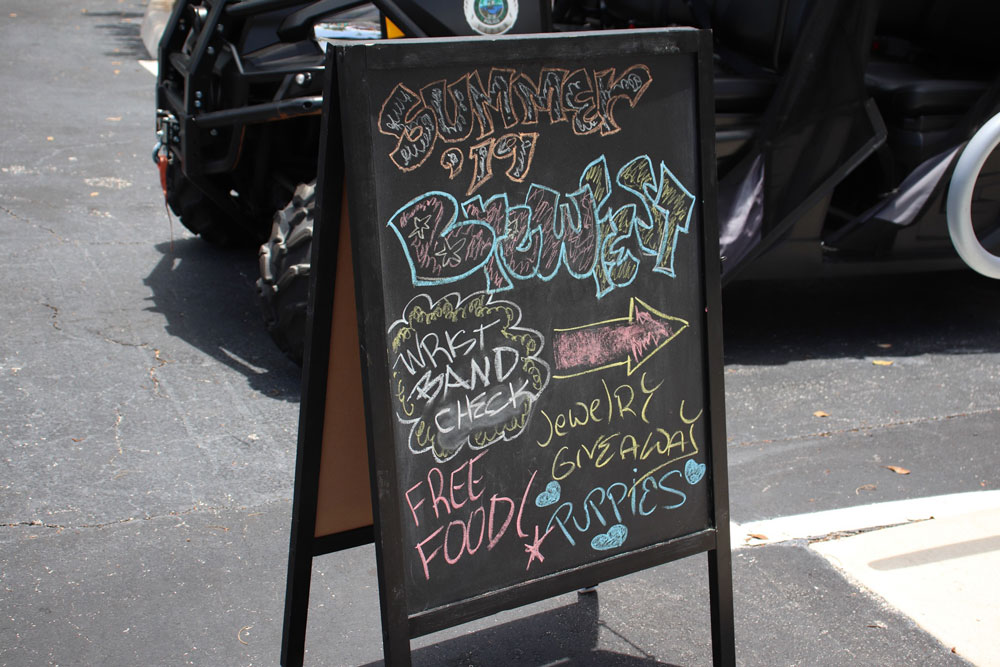 SUMMER
'19
BREWFEST
WRIST
BAND
CHECK
JEWELRY
GIVEAWAY
FREE
FOOD!
PUPPIES